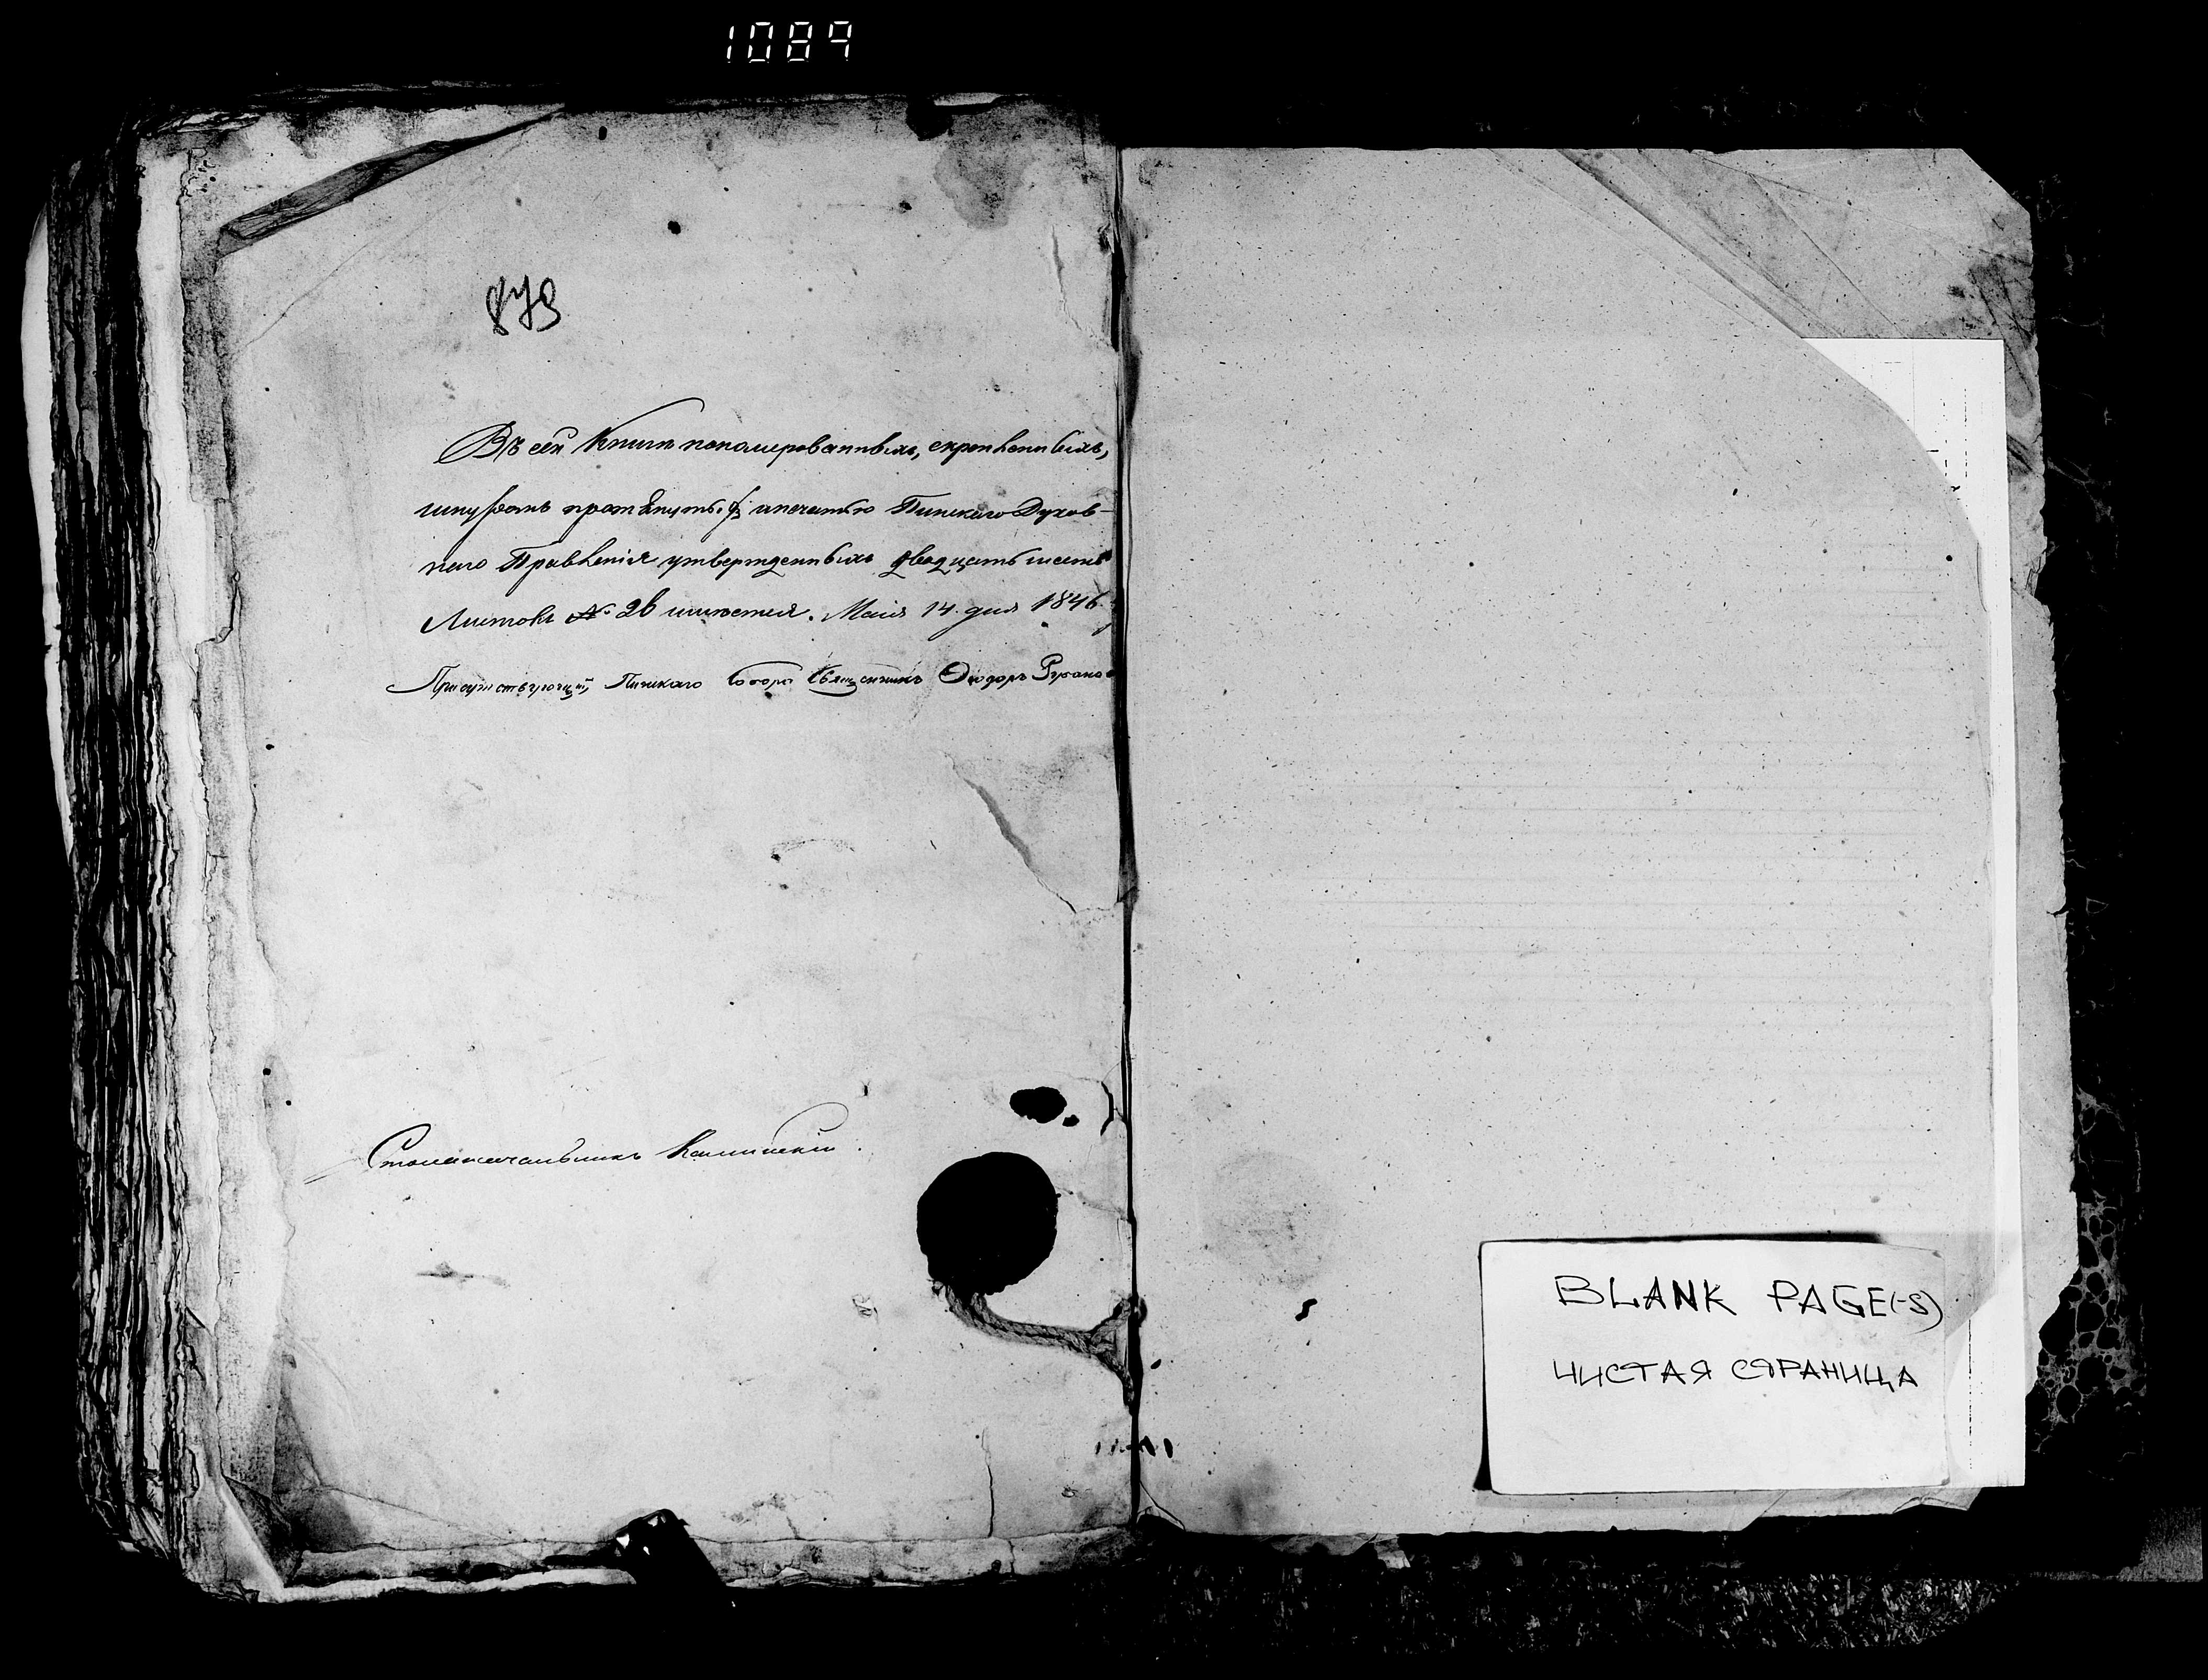 1089
879
Въ сей Книгѣ пономерованныхъ, скрѣпленныхъ,
шнуромъ протянутыхъ и печатью Пинскаго Духов-
наго Правленія утвержденныхъ двадцать шесть
Листовъ № 26 имѣется. Маія 14 дня 1846
Присутствующій Пинскаго Собора Священникъ Ѳеодоръ
Столоначальникъ
BLANK PAGE(-S)
ЧИСТАЯ СТРАНИЦА